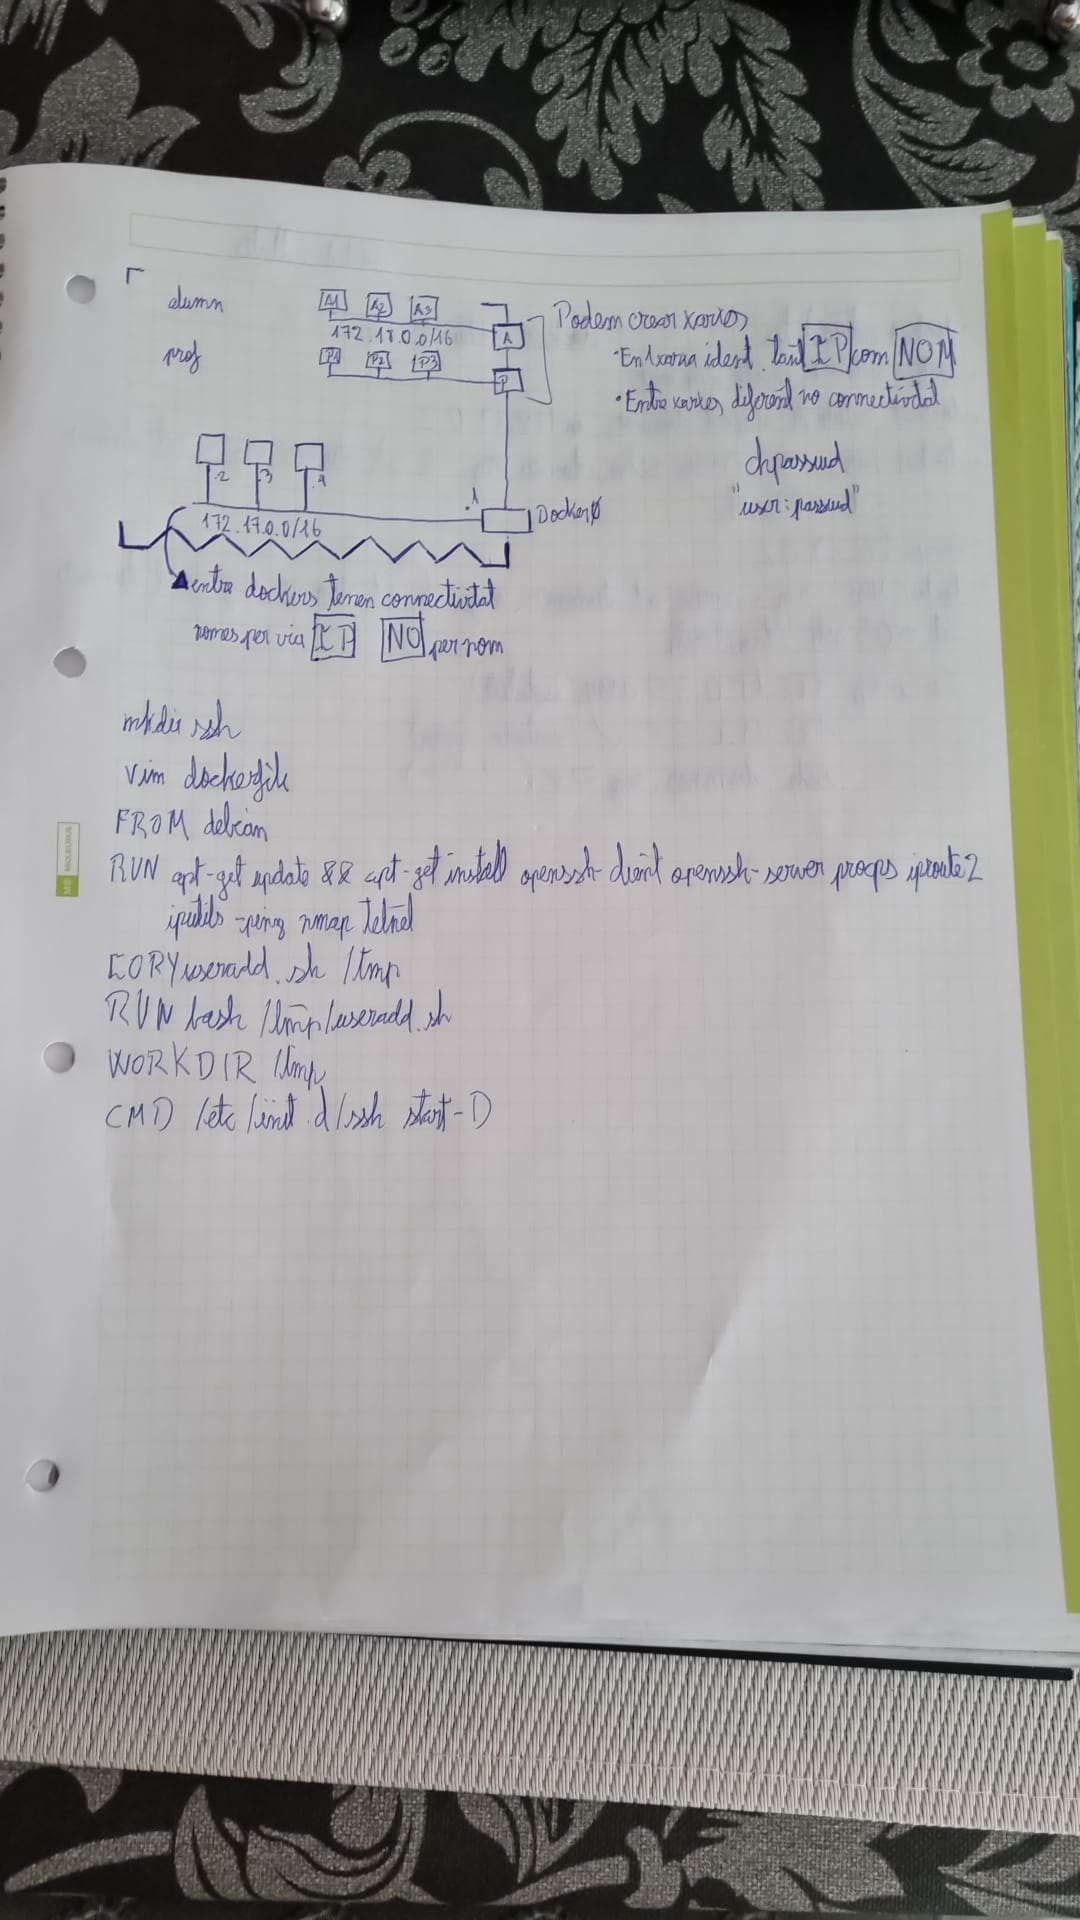 alumn
A1 A2 A3
172.18.0.0/16
A
prof
P1 P2 P3
P
Podem crear xarxes
·En 1 xarxa ident. tant IP com NOM
·Entre xarxes diferent no connectivitat
chpasswd
"user:passwd"
.2 .3 .4
.1
Docker0
172.17.0.0/16
entre dockers tenen connectivitat
nomes per via IP NO per nom
mkdir ssh
vim dockerfile
FROM debian
RUN apt-get update && apt-get install openssh-client openssh-server procps iproute2
iputils-ping nmap telnet
COPY useradd.sh /tmp
RUN bash /tmp/useradd.sh
WORKDIR /tmp
CMD /etc/init.d/ssh start -D
MIQUELRIUS